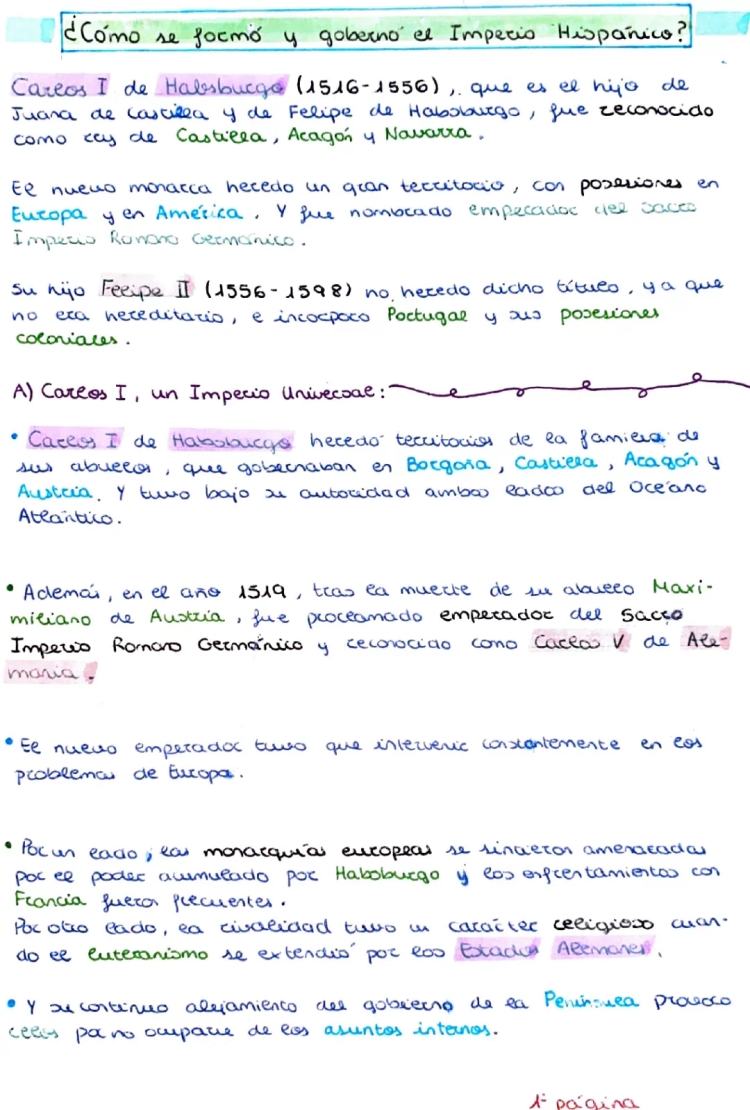 ¿Cómo se formó y gobernó el Imperio Hispánico?
Carlos I de Habsburgo (1516-1556), que es el hijo de
Juana de Castilla y de Felipe de Habsburgo, fue reconocido
como rey de Castilla, Aragón y Navarra.
El nuevo monarca heredo un gran territorio, con posesiones en
Europa y en América. Y fue nombrado emperador del Sacro
Imperio Romano Germánico.
Su hijo Felipe II (1556-1598) no heredo dicho título, ya que
no era hereditario, e incorporo Portugal y sus posesiones
coloniales.
A) Carlos I, un Imperio Universal:
• Carlos I de Habsburgo heredó territorios de la familia de
sus abuelos, que gobernaban en Borgoña, Castilla, Aragón y
Austria. Y tuvo bajo su autoridad ambos lados del Oceáno
Atlántico.
• Además, en el año 1519, tras la muerte de su abuelo Maxi-
miliano de Austria, fue proclamado emperador del Sacro
Imperio Romano Germánico y reconocido como Carlos V de Ale-
mania.
• El nuevo emperador tuvo que intervenir constantemente en los
problemas de Europa.
• Por un lado, las monarquías europeas se sintieron amenazadas
por el poder acumulado por Habsburgo y los enfrentamientos con
Francia fueron frecuentes.
Por otro lado, la rivalidad tuvo un carácter religioso cuan-
do el luteranismo se extendió por los Estados Alemanes.
• Y su continuo alejamiento del gobierno de la Península provoco
celos por no ocuparse de los asuntos internos.
1ª página